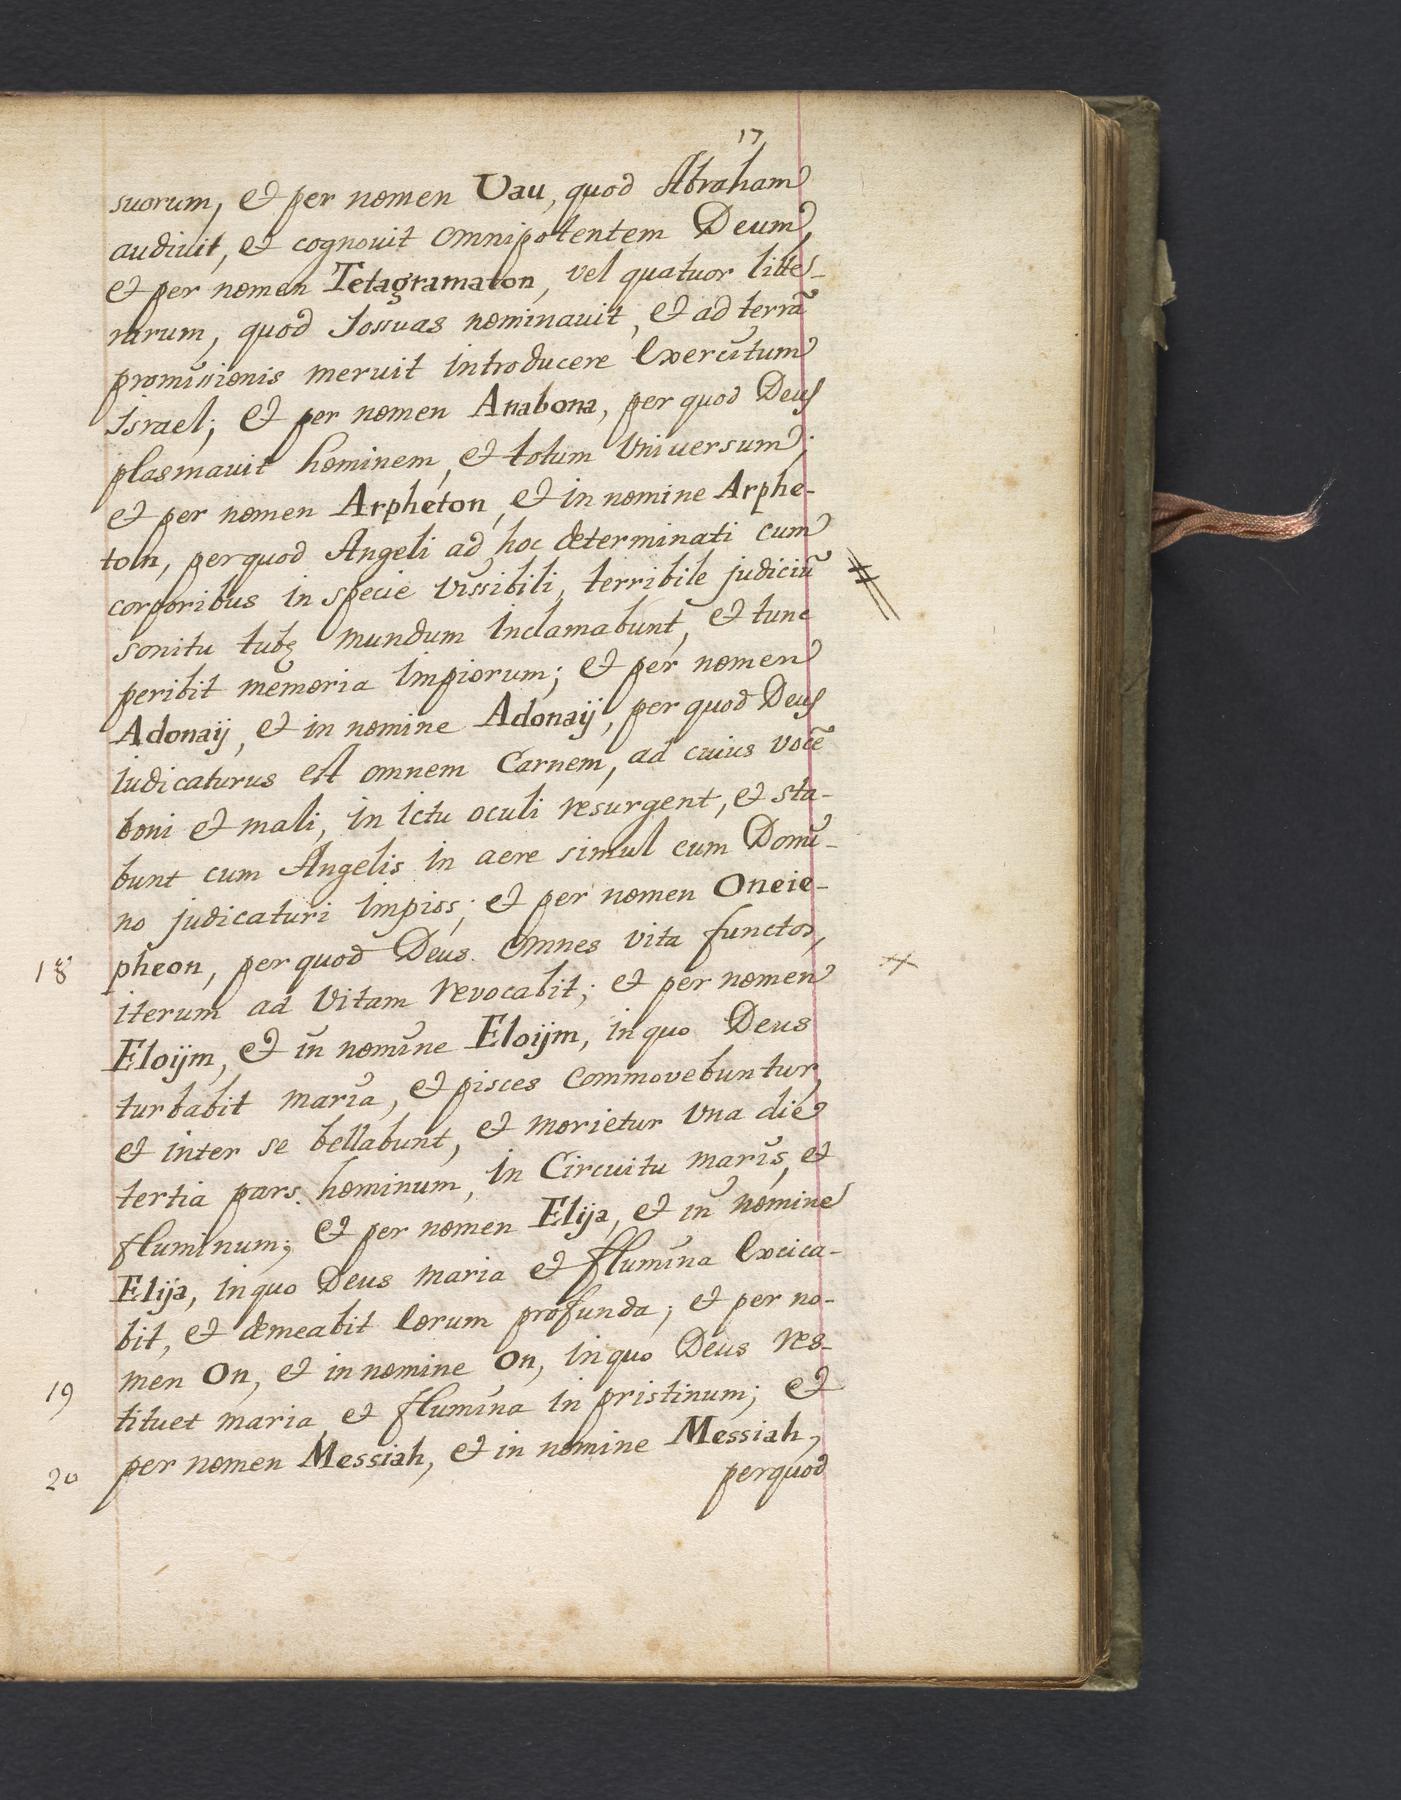 17
suorum, et per nomen Vau, quod Abraham
audiuit, et cognouit omnipotentem Deum,
et per nomen Tetagramaton, vel quatuor litte-
rarum, quod Jossuas nominauit, et ad terrã
promissionis meruit introducere Exercitum
Israel; et per nomen Anabona, per quod Deus
plasmauit hominem, et totum Vniuersum;
et per nomen Arpheton, et in nomine Arphe-
ton, perquod Angeli ad hoc determinati cum
corporibus in specie vissibili, terribile judiciũ
sonitu tubę mundum inclamabunt, et tunc
peribit memoria impiorum; et per nomen
Adonaij, et in nomine Adonaij, per quod Deus
iudicaturus est omnem Carnem, ad cuius vocẽ
boni et mali, in ictu oculi resurgent, et sta-
bunt cum Angelis in aere simul cum Domi-
no judicaturi impios; et per nomen Oneie-
18 pheon, per quod Deus omnes vita functos,
iterum ad Vitam revocabit; et per nomen
Eloijm, et in nomine Eloijm, in quo Deus
turbabit maria, et pisces commovebuntur,
et inter se bellabunt, et morietur Vna die
tertia pars hominum, in Circuitu maris, et
fluminum; et per nomen Elija, et in nomine
Elija, in quo Deus maria et flumina Excica-
bit, et demeabit Eorum profunda; et per no-
men On, et in nomine On, in quo Deus res-
19 tituet maria et flumina in pristinum; et
20 per nomen Messiah, et in nomine Messiah,
perquod